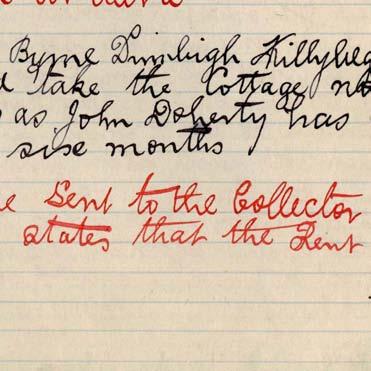 Byrne Dunleigh Killybeg
take the Cottage no
as John Doherty has
six months
Sent to the Collector
states that the Rent